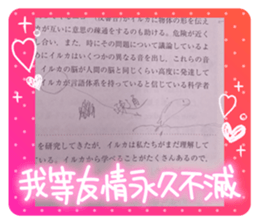 が互いに意思の疎通をするのも助ける。危険が近く
し合い、また、時にその問題について議論しているよ
にイルカはいくつかの異なる音を出し、これらの音
イルカの脳が人間の脳と同じくらい高度に発達して
イルカが言語体系を持っていると信じている科学者
を研究してきたが、イルカは私たちがまだ理解して
ている。イルカから学べることがたくさんあるので、
我等友情永久不滅